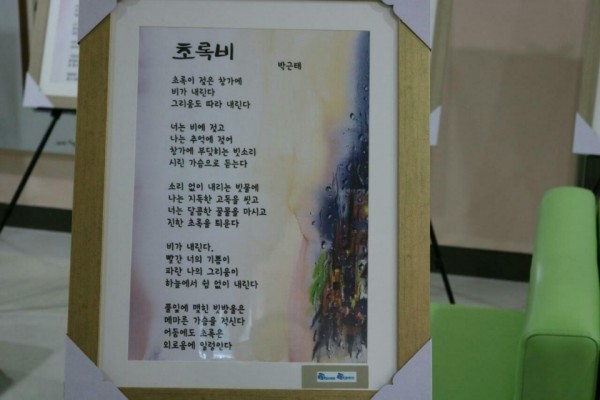 초록비
박근태
초록이 젖은 창가에
비가 내린다
그리움도 따라 내린다
너는 비에 젖고
나는 추억에 젖어
창가에 부딪히는 빗소리
시린 가슴으로 듣는다
소리 없이 내리는 빗물에
나는 지독한 고독을 씻고
너는 달콤한 꿀물을 마시고
진한 초록을 틔운다
비가 내린다.
빨간 너의 기쁨이
파란 나의 그리움이
하늘에서 쉼 없이 내린다
풀잎에 맺힌 빗방울은
메마른 가슴을 적신다
어둠에도 초록은
외로움에 일렁인다